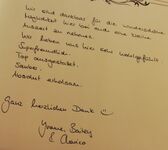 Wir sind dankbar für die wunderschöne
Möglichkeit hier bei euch eine kleine
Auszeit zu nehmen.
Wir haben uns hier sehr wohlgefühlt
Superfreundlich.
Top ausgestattet.
Sauber.
Absolut erholsam.
Ganz herzlichen Dank ☺
Yvonne,
&